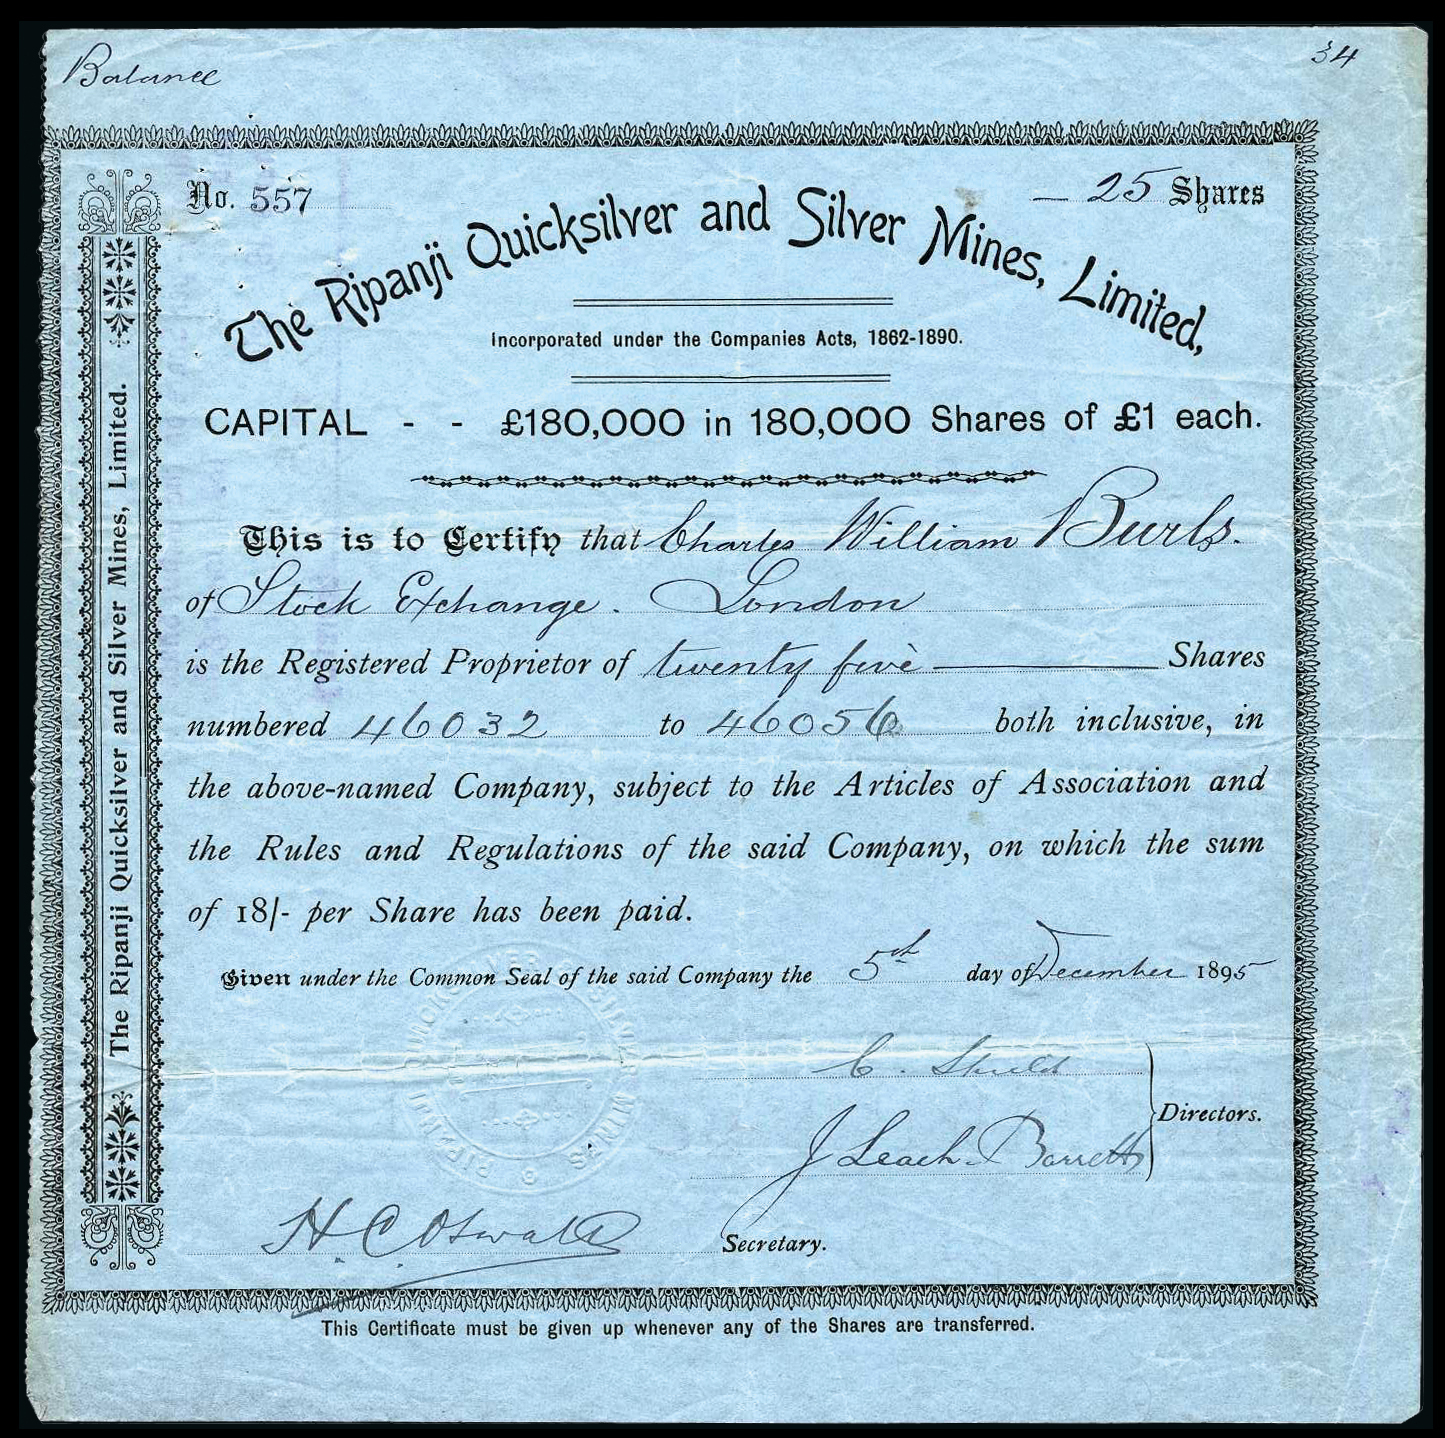 Balance
34
No. 557
— 25 Shares
The Ripanji Quicksilver and Silver Mines, Limited,
Incorporated under the Companies Acts, 1862-1890.
CAPITAL - - £180,000 in 180,000 Shares of £1 each.
This is to Certify that Charles William Burls.
of Stock Exchange. London
is the Registered Proprietor of twenty five — Shares
numbered 46032 to 46056 both inclusive, in
the above-named Company, subject to the Articles of Association and
the Rules and Regulations of the said Company, on which the sum
of 18/- per Share has been paid.
Given under the Common Seal of the said Company the 5th day of December 1895
C. Shield
J Leach-Barrett
Directors.
H. C. Oswald
Secretary.
This Certificate must be given up whenever any of the Shares are transferred.
The Ripanji Quicksilver and Silver Mines, Limited.